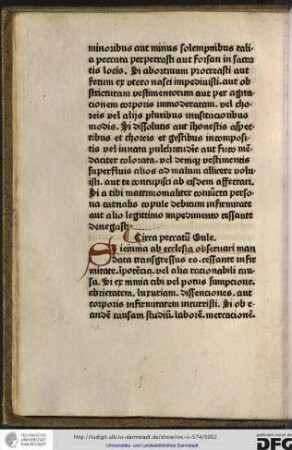 minoribus aut minus solempnibus tali
a peccata perpetrasti aut forsan in sacra
tis locis. Si abortiuum procrasti aut
fetum ex vtero nasci impediuisti. aut ob
strictiram vestimentorum aut per agita
cionem corporis immoderatam. vel cho
reis vel alijs pluribus
modis. Si dissolutis aut ihonestis aspec
tibus et choreis et gestibus incomposi
tis vel innata pulchritudie aut fuco mē
daciter colorata. vel demq vestimentis
superfluis alios ad malum allicere volu
isti. aut te concupisci ab eisdem affectasti.
Si a tibi matrimonialiter coniucta perso
na carnalis copule debitum infirmitate
aut alio legittimo impedimento cessante
denegasti.
Circa peccatū Gule.
Si ieiunia ab ecclesia obseruari man
data transgressus es. cessante infir
mitate. ipotēcia. vel alia racionabili cau
sa. Si ex nimia cibi vel potus sumpcione.
ebrietatem. luxuriam. dissenciones. aut
corporis infirmitatem incurristi. Si ob e
andē causam studiū. laborē. mercacionē.
http://tudigit.ulb.tu-darmstadt.de/show/inc-ii-574/0052
Universitäts- und Landesbibliothek Darmstadt
TECHNISCHE
UNIVERSITÄT
DARMSTADT
gefördert durch die
DFG